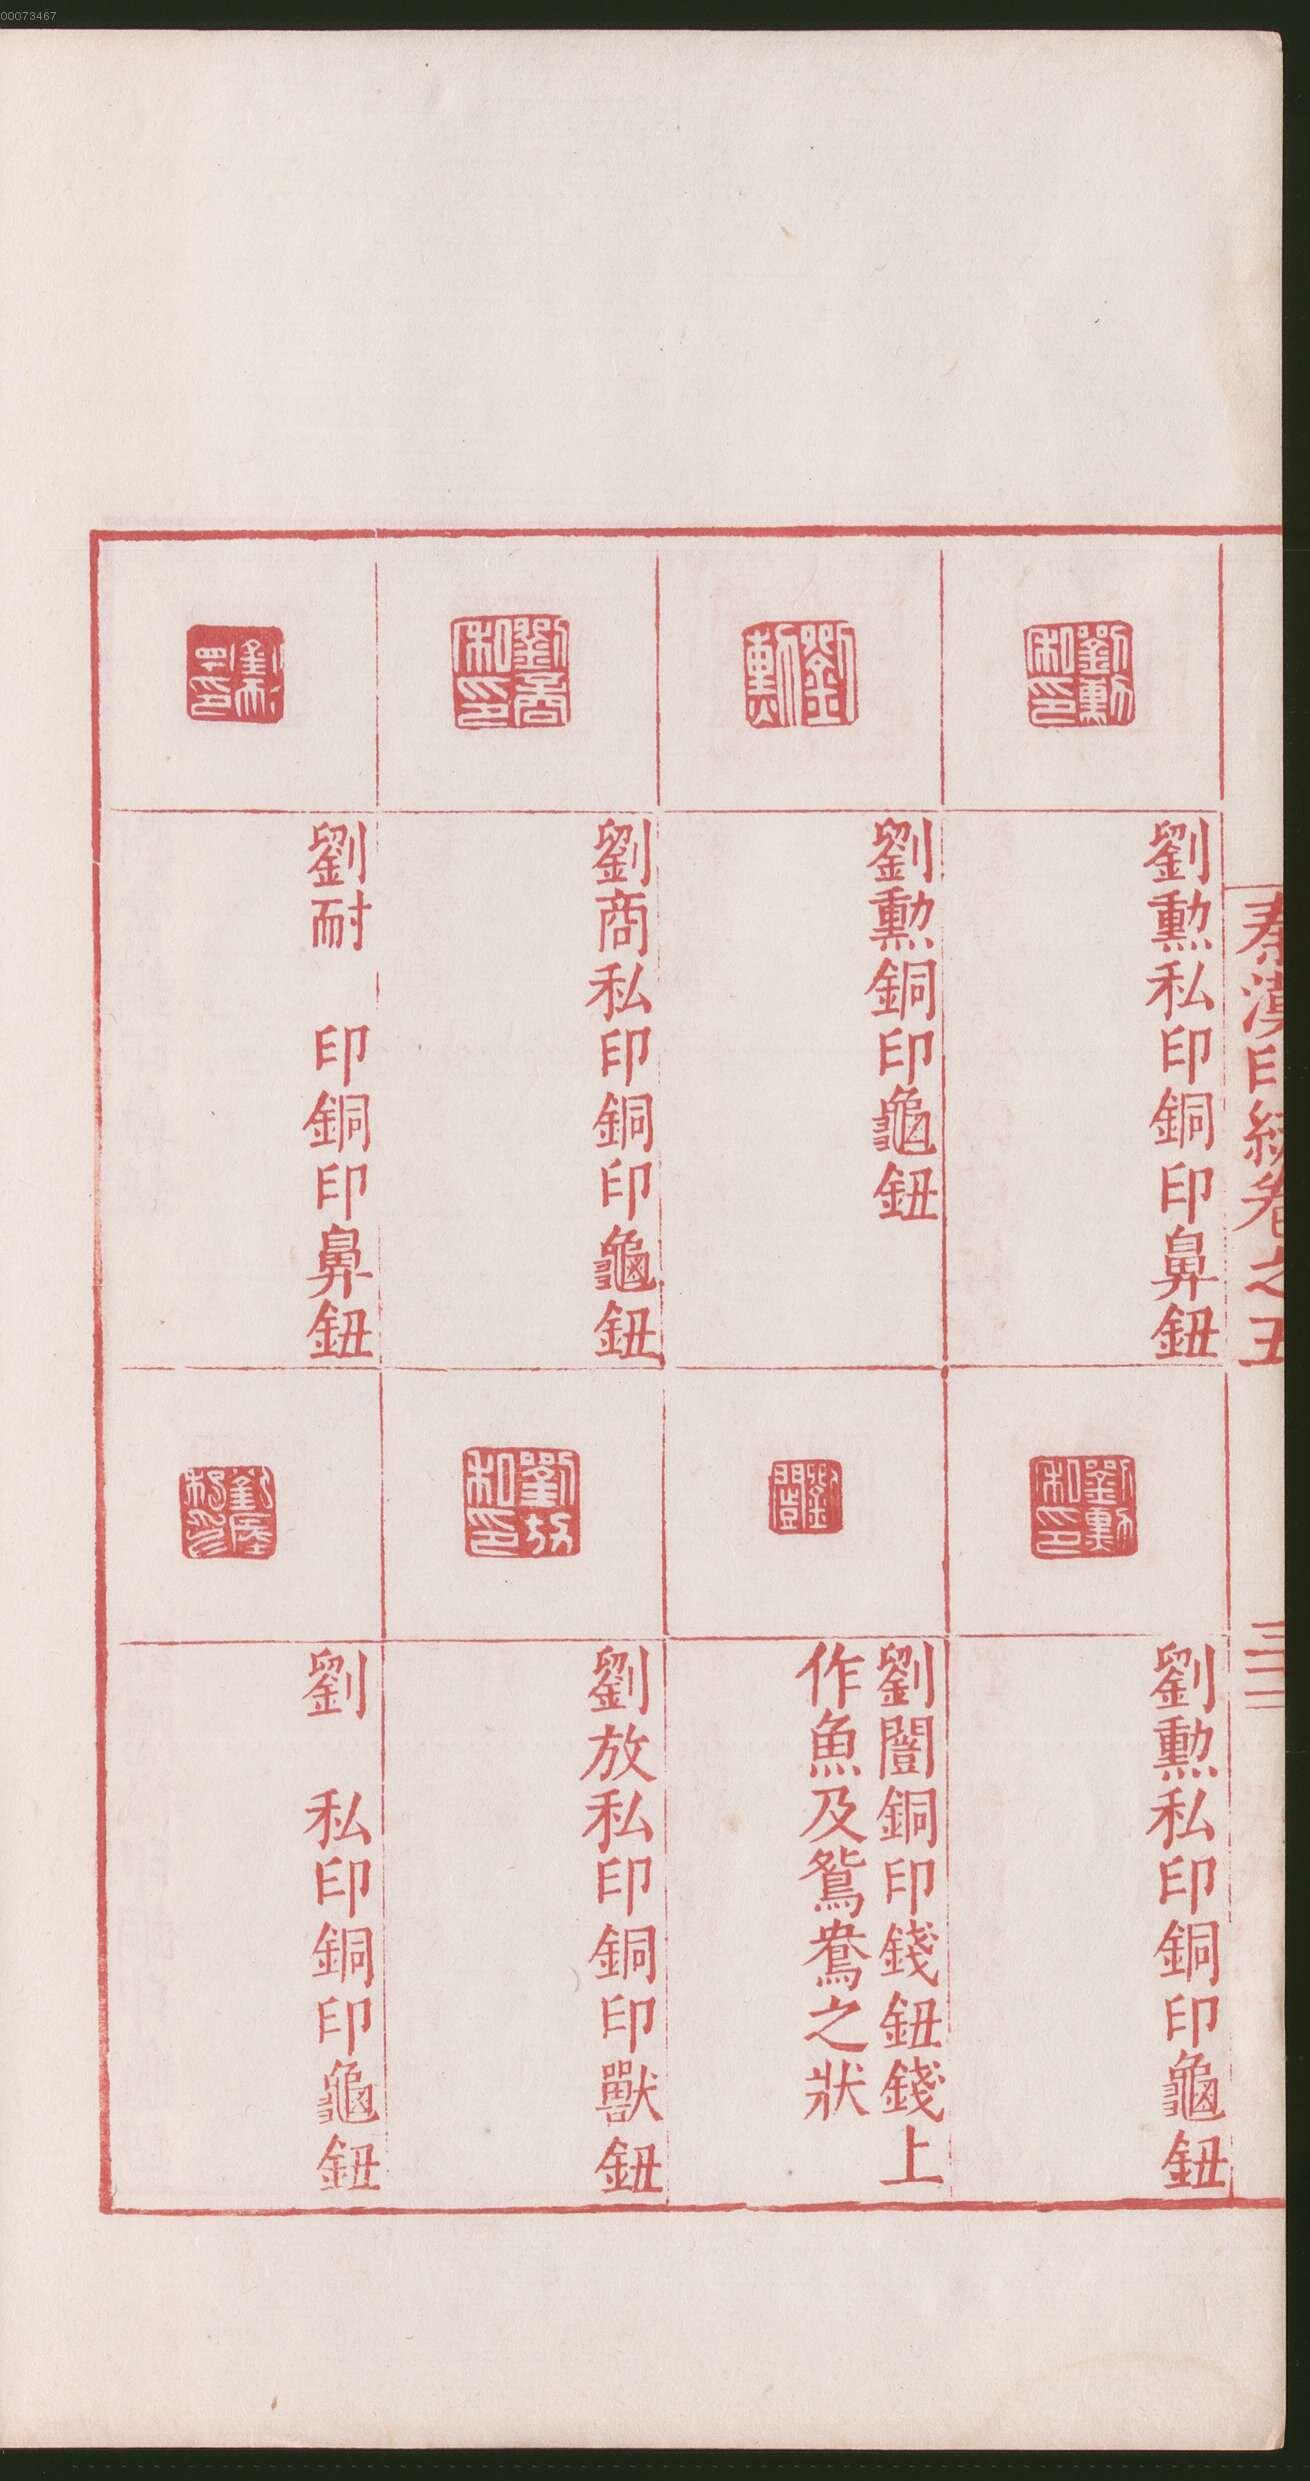 00073467
秦漢印統卷之五
劉勲私印銅印鼻鈕
劉勲銅印龜鈕
劉商私印銅印龜鈕
劉耐　印銅印鼻鈕
劉勲私印銅印龜鈕
劉闓銅印錢鈕錢上
作魚及鴛鴦之狀
劉放私印銅印獸鈕
劉　私印銅印龜鈕